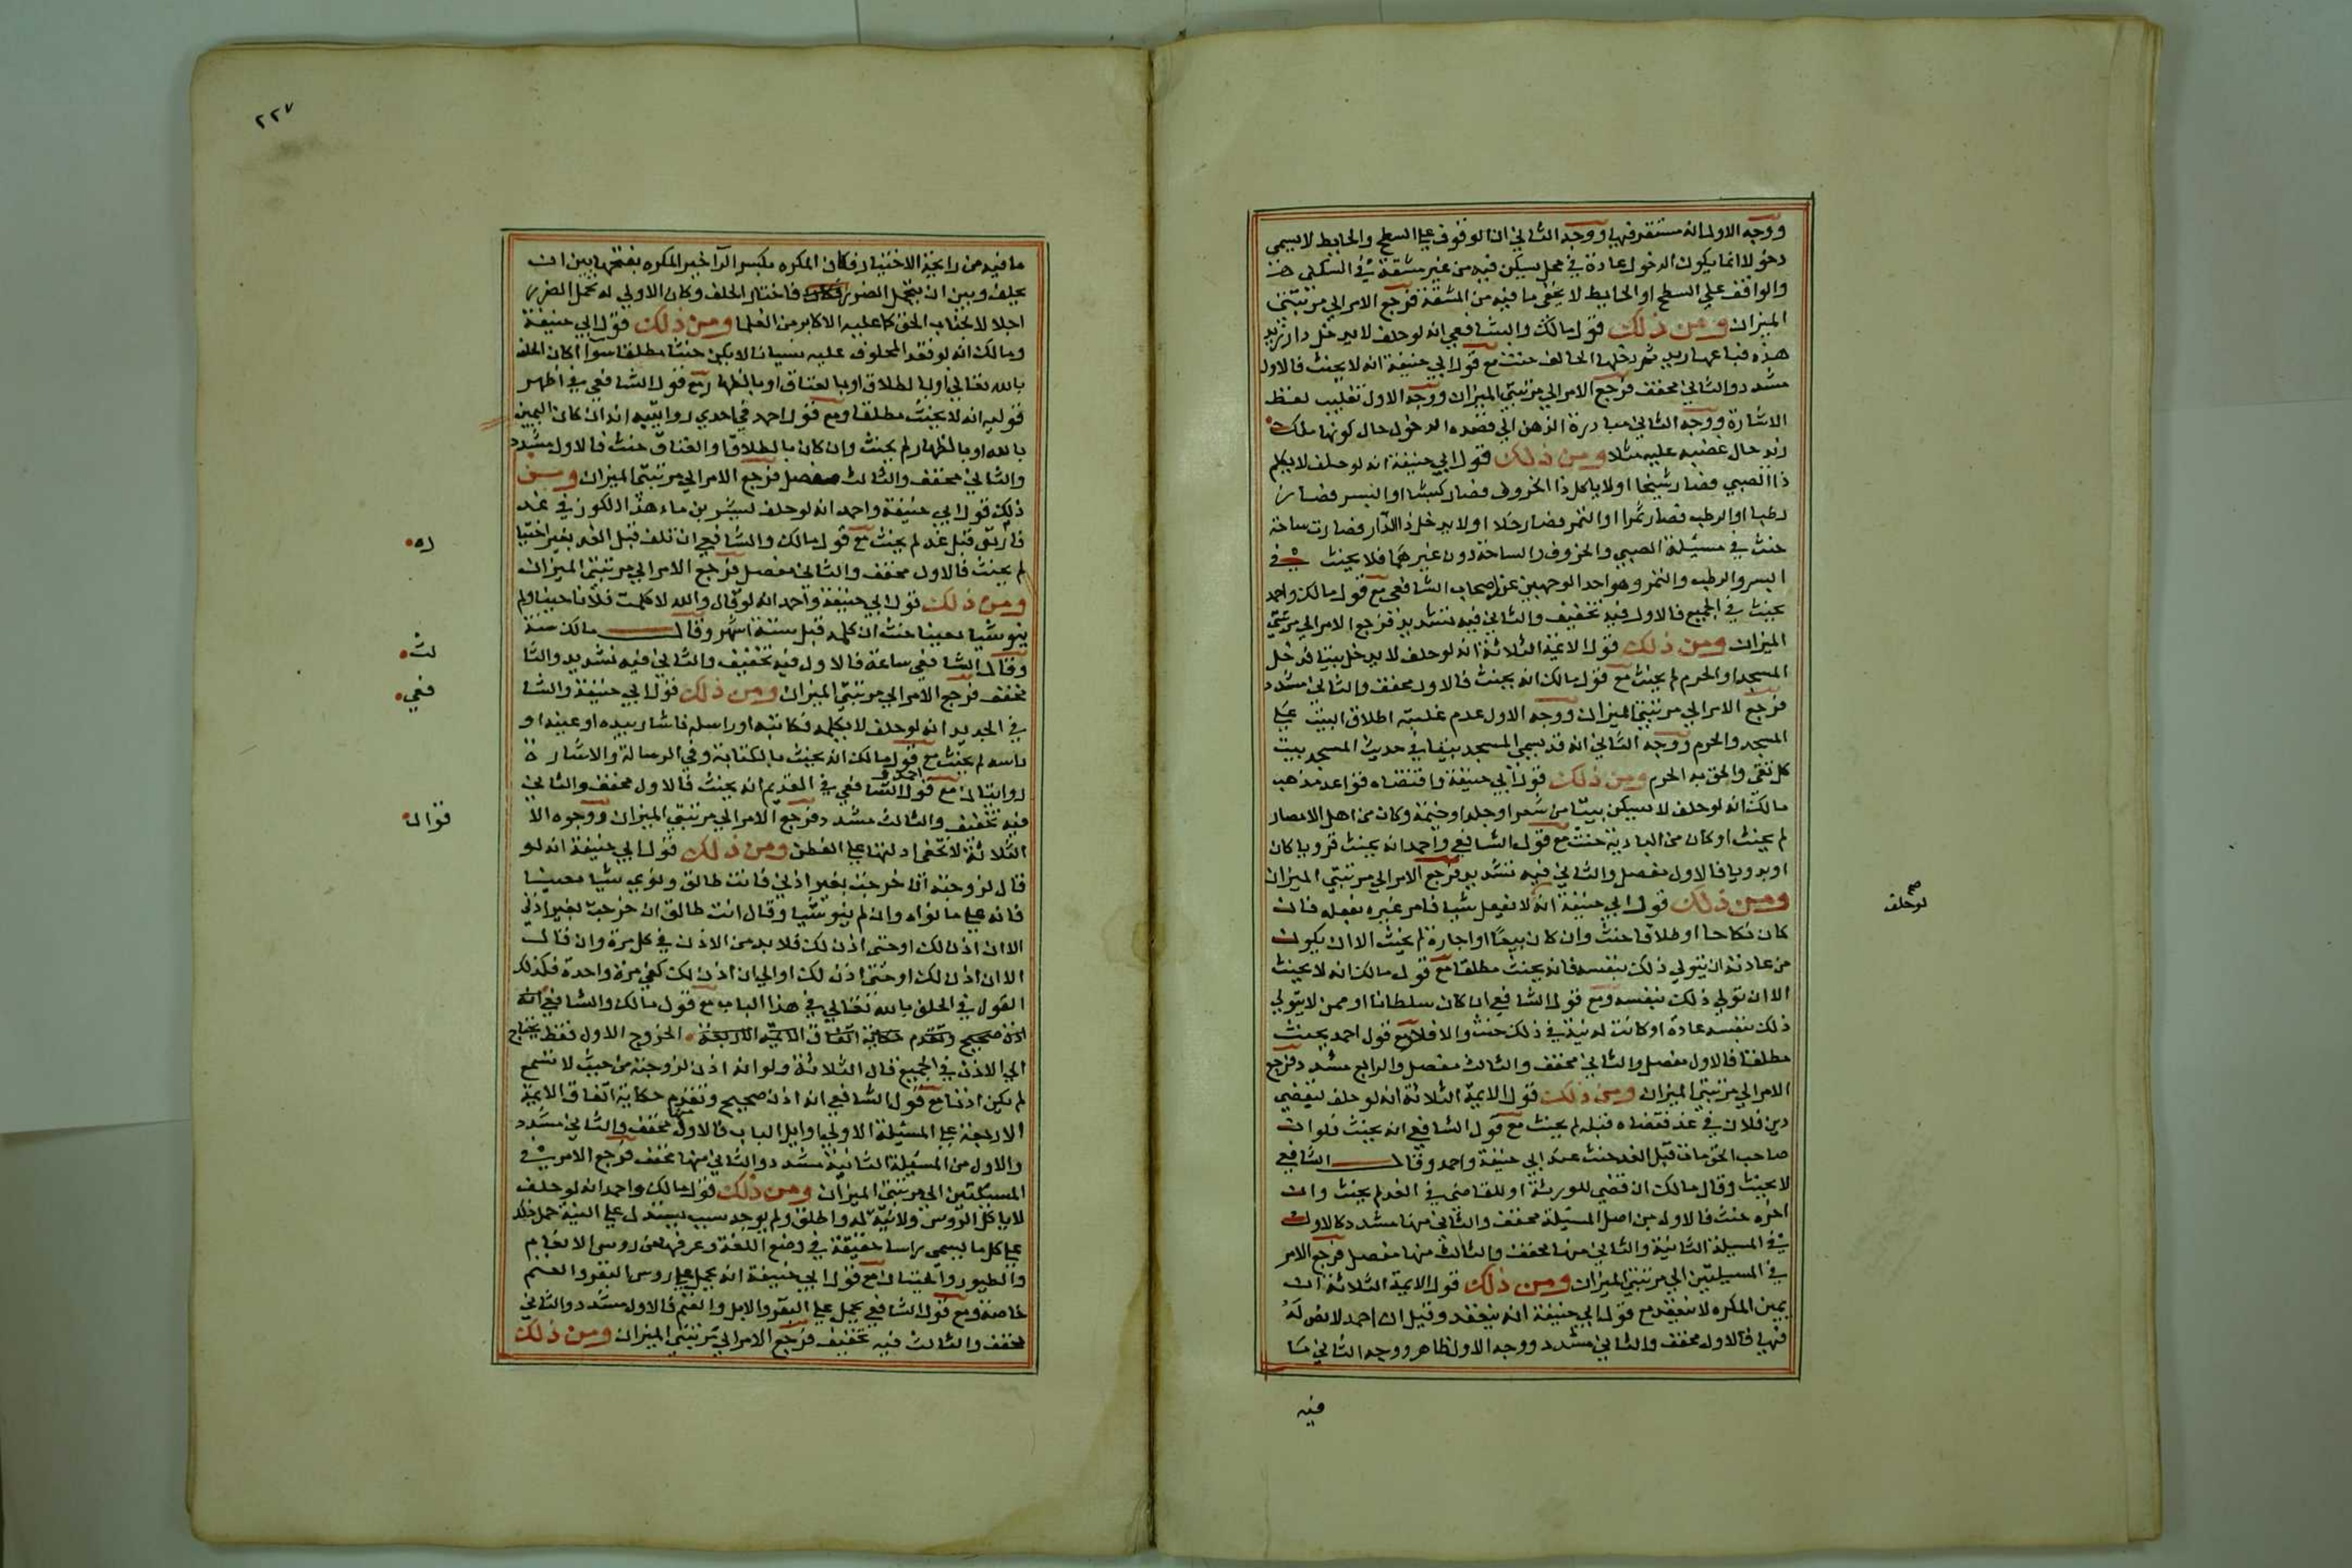 ووجه الاول انه مستقر فيها ووجه الثاني ان الوقوف علي السطح والحايط لا يسمي
دخولا انما يكون الدخول عادة في محل يسكن فيه من غير مشقة في السكني
والواقف علي السطح او الحايط لا يخفي ما فيه من المشقة فرجع الامر الي مرتبتي
الميزان ومن ذلك قول مالك والشافعي انه لو حلف لا يدخل دار زيد
هذه فباعها زيد ثم دخلها الحالف حنث مع قول ابي حنيفة انه لا يحنث فالاول
مشدد والثاني مخفف فرجع الامر الي مرتبتي الميزان ووجه الاول تغليب لفظ
الاشارة ووجه الثاني مبادرة الذهن الي قصده الدخول حال كونها ملك
زيد حال غضبه عليه مثلا ومن ذلك قول ابي حنيفة انه لو حلف لا يكلم
ذا الصبي فصار شيخا او لا ياكل ذا الخروف فصار كبشا او البسر فصار
رطبا او الرطب فصار تمرا او التمر فصار خلا او لا يدخل ذا الدار فصارت ساحة
حنث في مسئلة الصبي والخروف والساحة دون غيرهما فلا يحنث في
البسر والرطب والتمر وهو احد الوجهين عند اصحاب الشافعي مع قول مالك واحمد
يحنث في الجميع فالاول فيه تخفيف والثاني فيه تشديد فرجع الامر الي مرتبتي
الميزان ومن ذلك قول الائمة الثلاثة انه لو حلف لا يدخل بيتا فدخل
المسجد او الحرم لم يحنث مع قول مالك انه يحنث فالاول مخفف والثاني مشدد
فرجع الامر الي مرتبتي الميزان ووجه الاول عدم غلبة اطلاق البيت علي
المسجد والحرم ووجه الثاني انه قد يسمي المسجد بيتا في حديث المسجد بيت
كل تقي والحق به الحرم ومن ذلك قول ابي حنيفة واقتضاه قواعد مذهب
مالك انه لو حلف لا يسكن بيتا من شعر او جلد او خيمة وكان من اهل الامصار
لم يحنث او كان من البادية حنث مع قول الشافعي واحمد انه يحنث قرويا كان
او بدويا فالاول مفصل والثاني فيه تشديد فرجع الامر الي مرتبتي الميزان
ومن ذلك قول ابي حنيفة انه لا يفعل شيا فامر غيره بفعله فان
صح
لو حلف
كان نكاحا او طلاقا حنث وان كان بيعا او اجارة لم يحنث الا ان يكون
من عادته ان يتولي ذلك بنفسه فانه يحنث مطلقا مع قول مالك انه لا يحنث
الا ان تولي ذلك بنفسه ومع قول الشافعي ان كان سلطانا او ممن لا يتولي
ذلك بنفسه عادة او كانت له نية في ذلك حنث والا فلا مع قول احمد يحنث
مطلقا فالاول مفصل والثاني مخفف والثالث مفصل والرابع مشدد فرجع
الامر الي مرتبتي الميزان ومن ذلك قول الايمة الثلاثة انه لو حلف ليقضي
دين فلان في غد فقضاه قبله لم يحنث مع قول الشافعي انه يحنث فلو ان
صاحب الحق مات قبل الغد حنث عند ابي حنيفة واحمد وقال الشافعي
لا يحنث وقال مالك ان قضي للورثة او للقاضي في الغد لم يحنث وان
اخره حنث فالاول من اصل المسئلة مخفف والثاني منها مشدد كالاول
في المسيلة الثانية والثاني منها مخفف والثالث منها مفصل فرجع الامر
في المسيلتين الي مرتبتي الميزان ومن ذلك قول الايمة الثلاثة ان
يمين المكره لا تنعقد مع قول ابي حنيفة انه ينعقد وقيل ان احمد لا نص له
فيها فالاول مخفف والثاني مشدد ووجه الاول ظاهر ووجه الثاني ما
فيه
٢٢٧
ما فيه من رايحة الاختيار فكان المكره بكسر الرا خير المكره بفتحها بين ان
يحلف وبين ان يتحمل الضرر فكان فاختار الحلف وكان الاولي له تحمل الضرر
اجلالا لجناب الحق كما عليه الاكابر من العلما ومن ذلك قول ابي حنيفة
ومالك انه لو فعل المحلوف عليه نسيانا لا يكن حنثا مطلقا سوا اكان الحلف
بالله تعالي او بالطلاق او بالعتاق او بالظهار مع قول الشافعي في اظهر
قوليه انه لا يحنث مطلقا ومع قول احمد في احدي روايتيه انه ان كان اليمين
بالله او بالظهار لم يحنث وان كان بالطلاق او العتاق حنث فالاول مشدد
والثاني مخفف والثالث مفصل فرجع الامر الي مرتبتي الميزان ومن
ذلك قول ابي حنيفة واحمد انه لو حلف ليشربن ماء هذا الكوز في غد
فاريق قبل غد لم يحنث مع قول مالك والشافعي ان تلف قبل الغد بغير اختيا
ره
لم يحنث فالاول مخفف والثاني مفصل فرجع الامر الي مرتبتي الميزان
ومن ذلك قول ابي حنيفة واحمد انه لو قال والله لا كلمت فلانا حينا ولم
ينو شيا معينا حنث ان كلمه قبل ستة اشهر وقال مالك سنة
وقال الشافعي ساعة فالاول فيه تخفيف والثاني فيه تشديد والثا
لث
مخفف فرجع الامر الي مرتبتي الميزان ومن ذلك قول ابي حنيفة والشا
فعي
في الجديد انه لو حلف لا يكلمه فكاتبه او راسله او اشار بيده او عينه او
راسه لم يحنث مع قول مالك انه يحنث بالكتابة وفي الرسالة والاشارة
روايتان مع قول احمد و الشافعي في القديم انه يحنث فالاول مخفف والثاني
فيه تخفيف والثالث مشدد فرجع الامر الي مرتبتي الميزان ووجوه الا
قوال
الثلاثة لا تخفي ادلتها علي الفطن ومن ذلك قول ابي حنيفة انه لو
قال لزوجته ان خرجت بغير اذني فانت طالق ونوي شيا معينا
فانه علي ما نواه وان لم ينو شيا وقال انت طالق ان خرجت بغير اذني
الا ان اذن لك او حتي اذن لك فلا بد من الاذن في كل مرة وان قال
الا ان اذن لك او حتي اذن لك او الي ان اذن لك كفي مرة واحدة فكذلك
القول في الحلف بالله تعالي في هذا الباب مع قول مالك والشافعي انه
اذن صحيح وتقدم حكاية اتفاق الايمة الاربعة الخروج الاول فقط يحتاج
الي الاذن في الجميع قال الثلاثة ولو انه اذن لزوجته من حيث لا تسمع
لم يكن اذنا مع قول الشافعي انه اذن صحيح وتقدم حكاية اتفاق الايمة
الاربعة علي المسئلة الاولي اوايل الباب فالاول مخفف والثاني مشدد
والاول من المسئلة الثانية مشدد والثاني منها مخفف فرجع الامر في
المسئلتين الي مرتبتي الميزان ومن ذلك قول مالك واحمد انه لو حلف
لا ياكل الرؤس ولا نية له واطلق ولم يوجد سبب يستدل به علي النية حمل ذلك
علي كل ما يسمي راسا حقيقة في وضع اللغة وعرفها من روس الانعام
والطيور والحيتان مع قول ابي حنيفة انه يحمل علي روس البقر والغنم
خاصة ومع قول الشافعي يحمل علي البقر والابل والغنم فالاول مشدد والثاني
مخفف والثالث فيه تخفيف فرجع الامر الي مرتبتي الميزان ومن ذلك